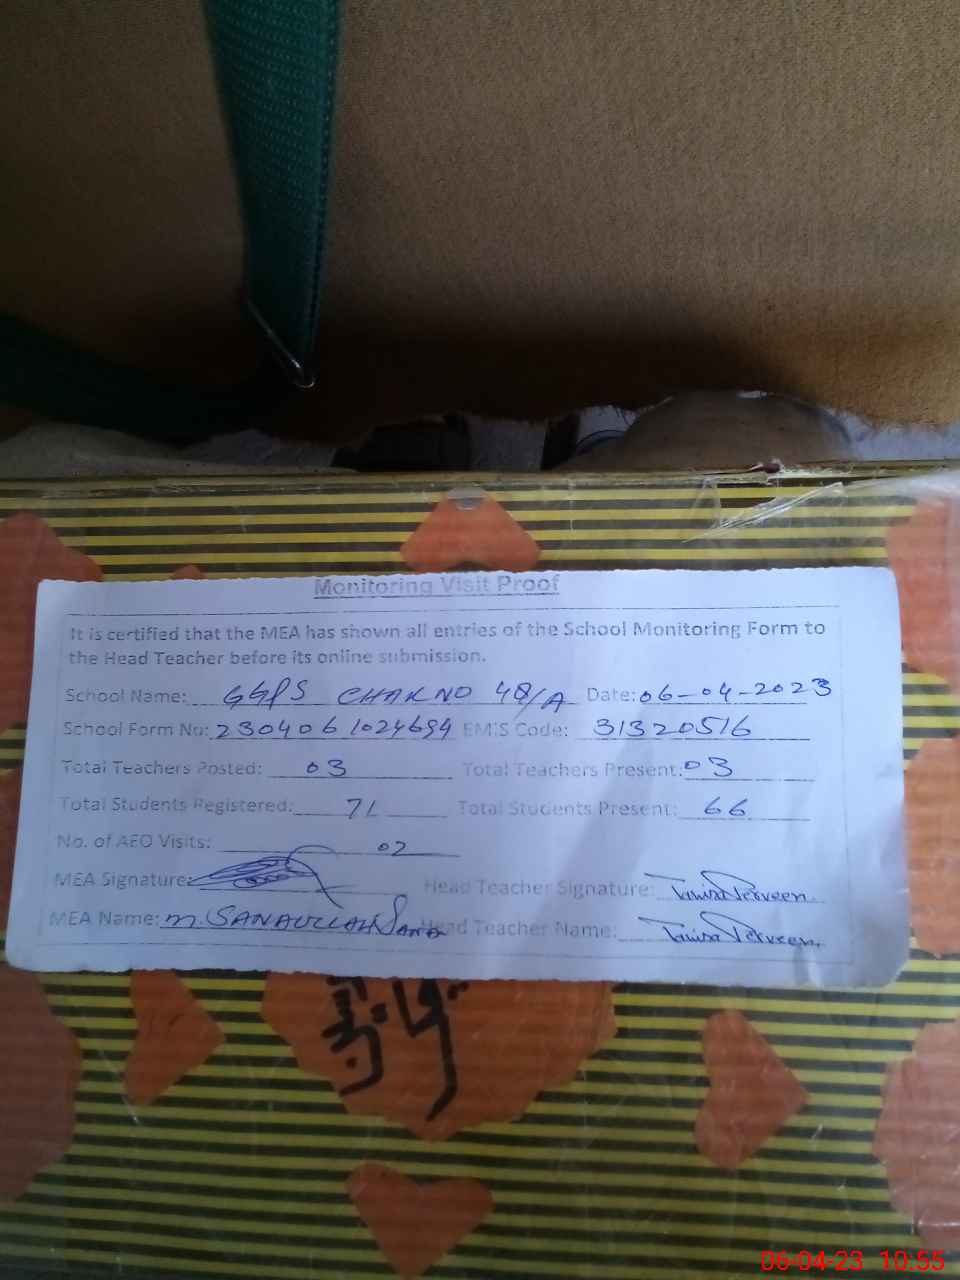 Monitoring Visit Proof
It is certified that the MEA has shown all entries of the School Monitoring Form to
the Head Teacher before its online submission.
School Name: GGPS CHAK NO 48/A Date: 06-04-2023
School Form No: 2304061024694 EMIS Code: 31320516
Total Teachers Posted: 03 Total Teachers Present: 03
Total Students Registered: 71 Total Students Present: 66
No. of AEO Visits: 02
MEA Signature: Head Teacher Signature: Perveen
MEA Name: M. SANAULLAH Head Teacher Name: Perveen
06-04-23 10:55